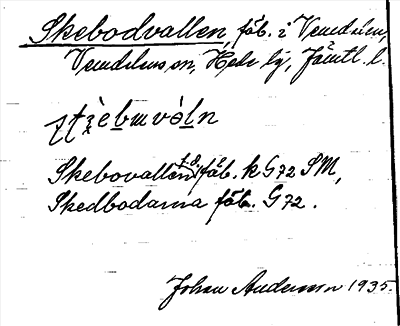 Skebodvallen, fäb. i Vemdalen,
Vemdalens sn, Hede lg, Jämtl. l.
Skebovallen 1.8. fäb. k G72 SM,
Skedbodarna fäb. G72.
Johan Anderson 1935.